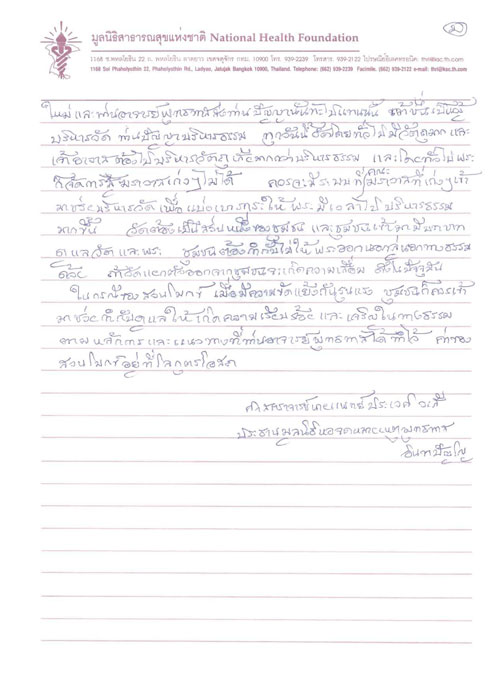 (๒)
มูลนิธิสาธารณสุขแห่งชาติ National Health Foundation
1168 ซ.พหลโยธิน 22 ถ. พหลโยธิน ลาดยาว เขตจตุจักร กทม. 10900 โทร. 939-2239 โทรสาร. 939-2122 ไปรษณีย์อิเลคทรอนิค. thvi@isc.th.com
1168 Soi Phaholyothin 22, Phaholyothin Rd., Ladyao, Jatujak Bangkok 10900, Thailand. Telephone: (662) 939-2239 Facsimile. (662) 939-2122 e-mail: thvi@isc.th.com
ใหม่ และท่านอาจารย์พุทธทาสส่งท่านปัญญานันทะไปแทนนั้น
บริหารวัด ท่านปัญญาบริหารธรรม ทุกวันนี้วัดโดยทั่วไปมีวัตถุมาก และ
เจ้าอาวาสต้องไปบริหารวัตถุเสียมากกว่าบริหารธรรม และโดยทั่วไปพระ
ก็จัดการสู้ฆราวาสเก่งๆไม่ได้ ควรจะมีระบบที่มีคณะฆราวาสที่เก่งๆเข้า
มาช่วยบริหารวัด เพื่อแบ่งเบาภาระให้พระมีเวลาไปบริหารธรรม
มากขึ้น วัดต้องเป็นส่วนหนึ่งของชุมชน และชุมชนเข้ามามีบทบาท
ดูแลวัดและพระ ชุมชนต้องกำกับไม่ให้พระออกนอกลู่นอกทางธรรม
ด้วย ถ้าวัดแยกตัวออกจากชุมชนจะเกิดความเสื่อม ดังในปัจจุบัน
ในกรณีของสวนโมกข์ เมื่อมีความขัดแย้งกันรุนแรง ชุมชนก็ควรเข้า
มาช่วยกำกับดูแลให้เกิดความเรียบร้อย และเจริญในทางธรรม
ตามหลักการและแนวทางที่ท่านอาจารย์พุทธทาสได้ทำไว้ ค่าของ
สวนโมกข์อยู่ที่โลกุตรโอสถ
ศาสตราจารย์นายแพทย์ประเวศ วะสี
ประธานมูลนิธิหอจดหมายเหตุพุทธทาส
อินทปัญโญ